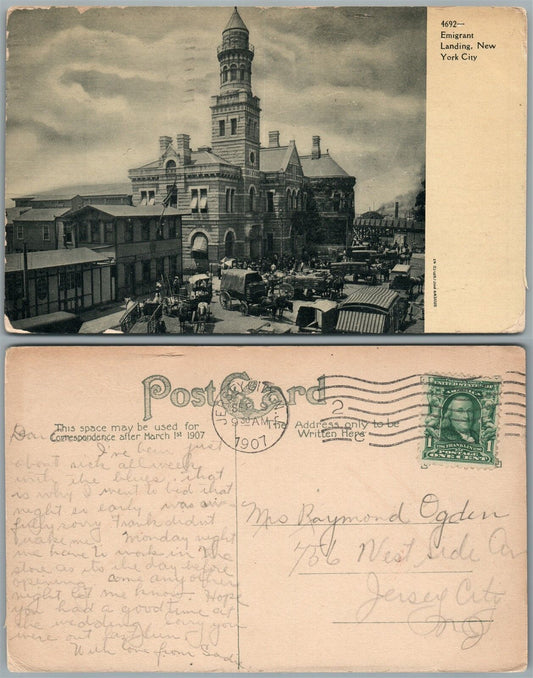 4692—
Emigrant
Landing, New
York City
Post Card
This space may be used for
Correspondence after March 1st 1907
The Address only to be
Written Here
JERSEY CITY
SEP
9 30 AM
1907
2
UNITED STATES
FRANKLIN
POSTAGE
1 ONE CENT 1
I've been just
about sick all week
with the blues. that
is why I went to bed that
night so early was
fully sorry didn't
wake me Monday night
we have to work in the
store as its the day before
opening come any other
night let me know. Hope
you had a good time at
the wedding sorry you
were out
With love from Sadie
Mrs Raymond Ogden
756 West Side Av
Jersey City
NJ